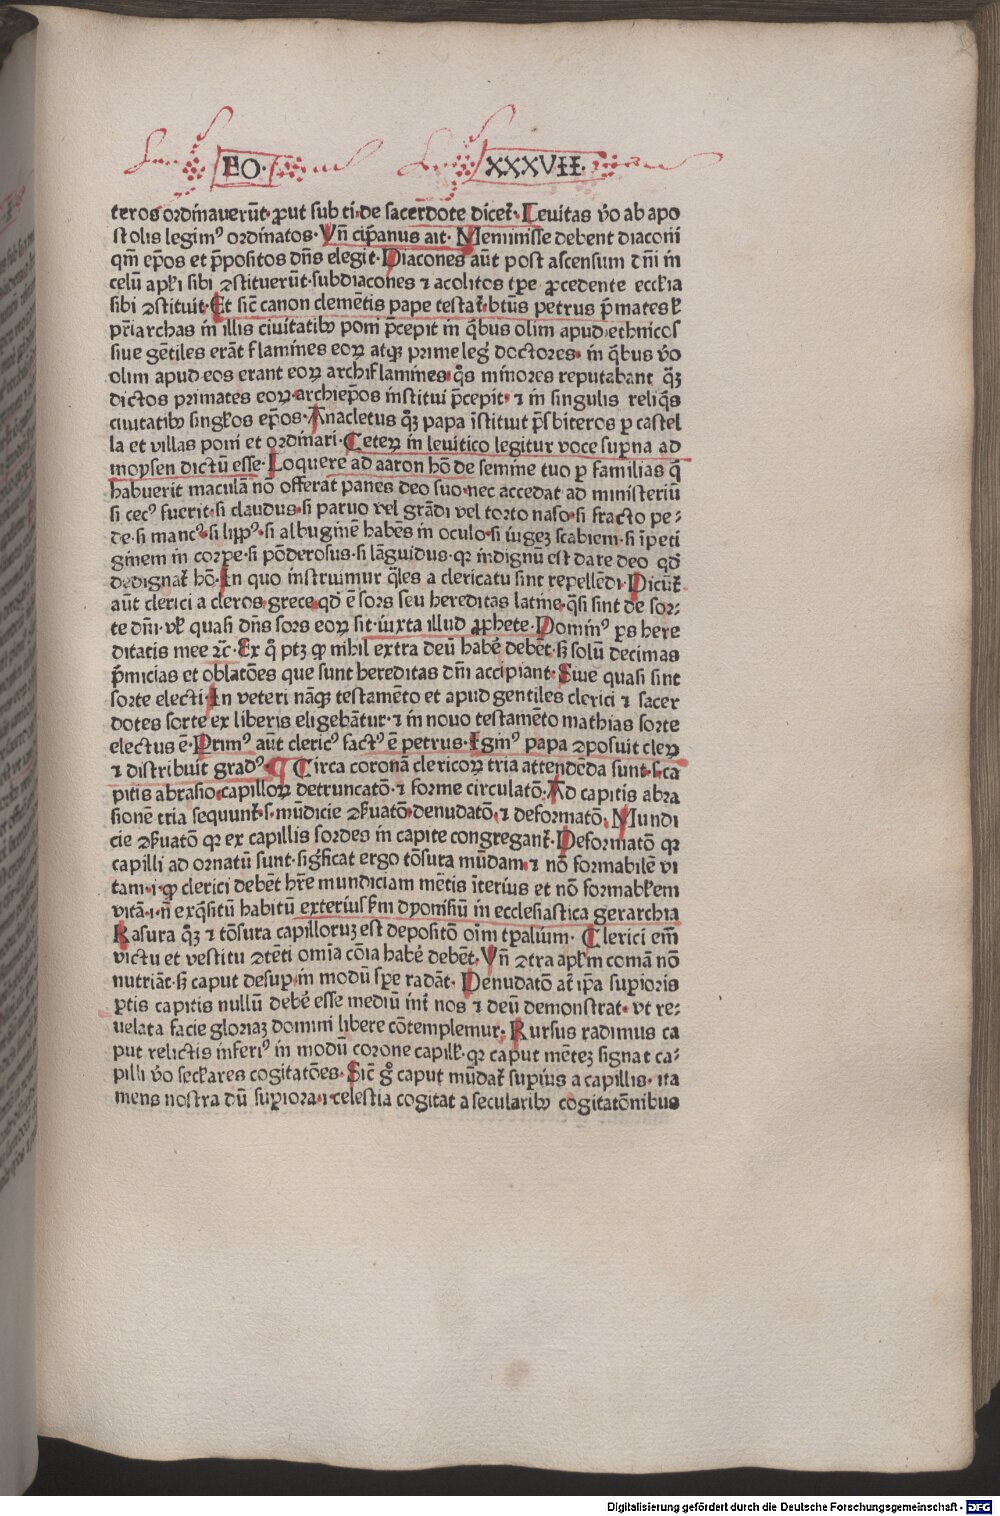 EO· XXXVII·
teros ordinauerūt· ꝓut sub ti· de sacerdote dicet᷑· Leuitas v̄o ab apo
stolis legimꝰ ordinatos· Vn̄ cip̄anus ait· Meminisse debent diaconi
qm̄ ep̄os et p̄positos dn̄s elegit· Diacones aūt post ascensum dn̄i in
celū apl̄i sibi ꝯstituerūt· subdiacones ⁊ acolitos tp̄e ꝓcedente eccl̄ia
sibi ꝯstituit· Et sic̄ canon clemētis pape testat᷑· btūs petrus p̄mates l̄
pr̄iarchas in illis ciuitatibꝫ poni p̄cepit in q̄bus olim apud ethnicos
siue gētiles erāt flamines eoꝝ atqꝫ prime leg̾ doctores· in q̄bus v̄o
olim apud eos erant eoꝝ archiflamines· q̄s minores reputabant q̄ꝫ
dictos primates eoꝝ· archiep̄os institui p̄cepit· ⁊ in singulis reliq̄s
ciuitatibꝫ singl̄os ep̄os· Anacletus q̄ꝫ papa īstituit p̄sbiteros ꝑ castel
la et villas poni et ordinari· Ceteꝝ in leuitico legitur voce sup̄na ad
moysen dictū esse· Loquere ad aaron hō de semine tuo ꝑ familias q̄
habuerit maculā nō offerat panes deo suo· nec accedat ad ministeriū
si cecꝰ fuerit· si claudus· si paruo vel grādi vel torto naso· si fracto pe⸗
de· si mancꝰ· si lipꝑꝰ· si albuginē habēs in oculo· si iugeꝫ scabiem· si īpeti
ginem in corꝑe· si pōderosus· si lāguidus· qꝛ indignū est dare deo qd̄
dedignat᷑ hō· In quo instruimur q̄les a clericatu sint repellēdi· Dicūt᷑
aūt clerici a cleros grece· qd̄ ē sors seu hereditas latine· q̄si sint de sor⸗
te dn̄i· vl̄ quasi dn̄s sors eoꝝ sit· iuxta illud ꝓph̄ete· Dominꝰ ꝑs here
ditatis mee ⁊c̄· Ex q̄ ptꝫ ꝙ nihil extra deū habē debēt· sꝫ solū decimas
p̄micias et oblatōes que sunt hereditas dn̄i accipiant· Siue quasi sint
sorte electi· In veteri nāqꝫ testamēto et apud gentiles clerici ⁊ sacer
dotes sorte ex liberis eligebātur· ⁊ in nouo testamēto mathias sorte
electus ē· Primꝰ aūt clericꝰ factꝰ ē petrus· Iginꝰ papa ꝯposuit cleꝝ
⁊ distribuit gradꝰ· ¶ Circa coronā clericoꝝ tria attendēda sunt· s· ca
pitis abrasio· capilloꝝ detruncatō· ⁊ forme circulatō· Ad capitis abra
sionē tria sequunt᷑· s· mūdicie ꝯẜuatō· denudatō· ⁊ deformatō· Mundi
cie ꝯẜuatō qꝛ ex capillis sordes in capite congregant᷑· Deformatō qꝛ
capilli ad ornatū sunt· sig̾ficat ergo tōsura mūdam ⁊ nō formabilē vi
tam· i· ꝙ clerici debēt hr̄e mundiciam mētis īterius et nō formabl̄em
vitā· i· n̄ exq̄sitū habitū exterius ẜm dyonisiū in ecclesiastica gerarchia
Rasura q̄ꝫ ⁊ tōsura capilloruꝫ est depositō oīm tp̄alium· Clerici em̄
victu et vestitu ꝯtēti omīa cōia habē debēt· Vn̄ ꝯtra apl̄m comā nō
nutriāt· sꝫ caput desuꝑ in modū sp̄e radāt· Denudatō at᷑ ip̄a suꝑioris
ꝑtis capitis nullū debē esse mediū int᷑ nos ⁊ deū demonstrat· vt re⸗
uelata facie gloriaꝫ domini libere cōtemplemur· Rursus radimus ca
put relictis inferiꝰ in modū corone capill̄· qꝛ caput mēteꝫ signat ca⸗
pilli v̄o secl̄ares cogitatōes· Sic̄ g̊ caput mūdat᷑ superius a capillis· ita
mens nostra dū suꝑiora· i· celestia cogitat a secularibꝫ cogitatōnibus
Digitalisierung gefördert durch die Deutsche Forschungsgemeinschaft - DFG